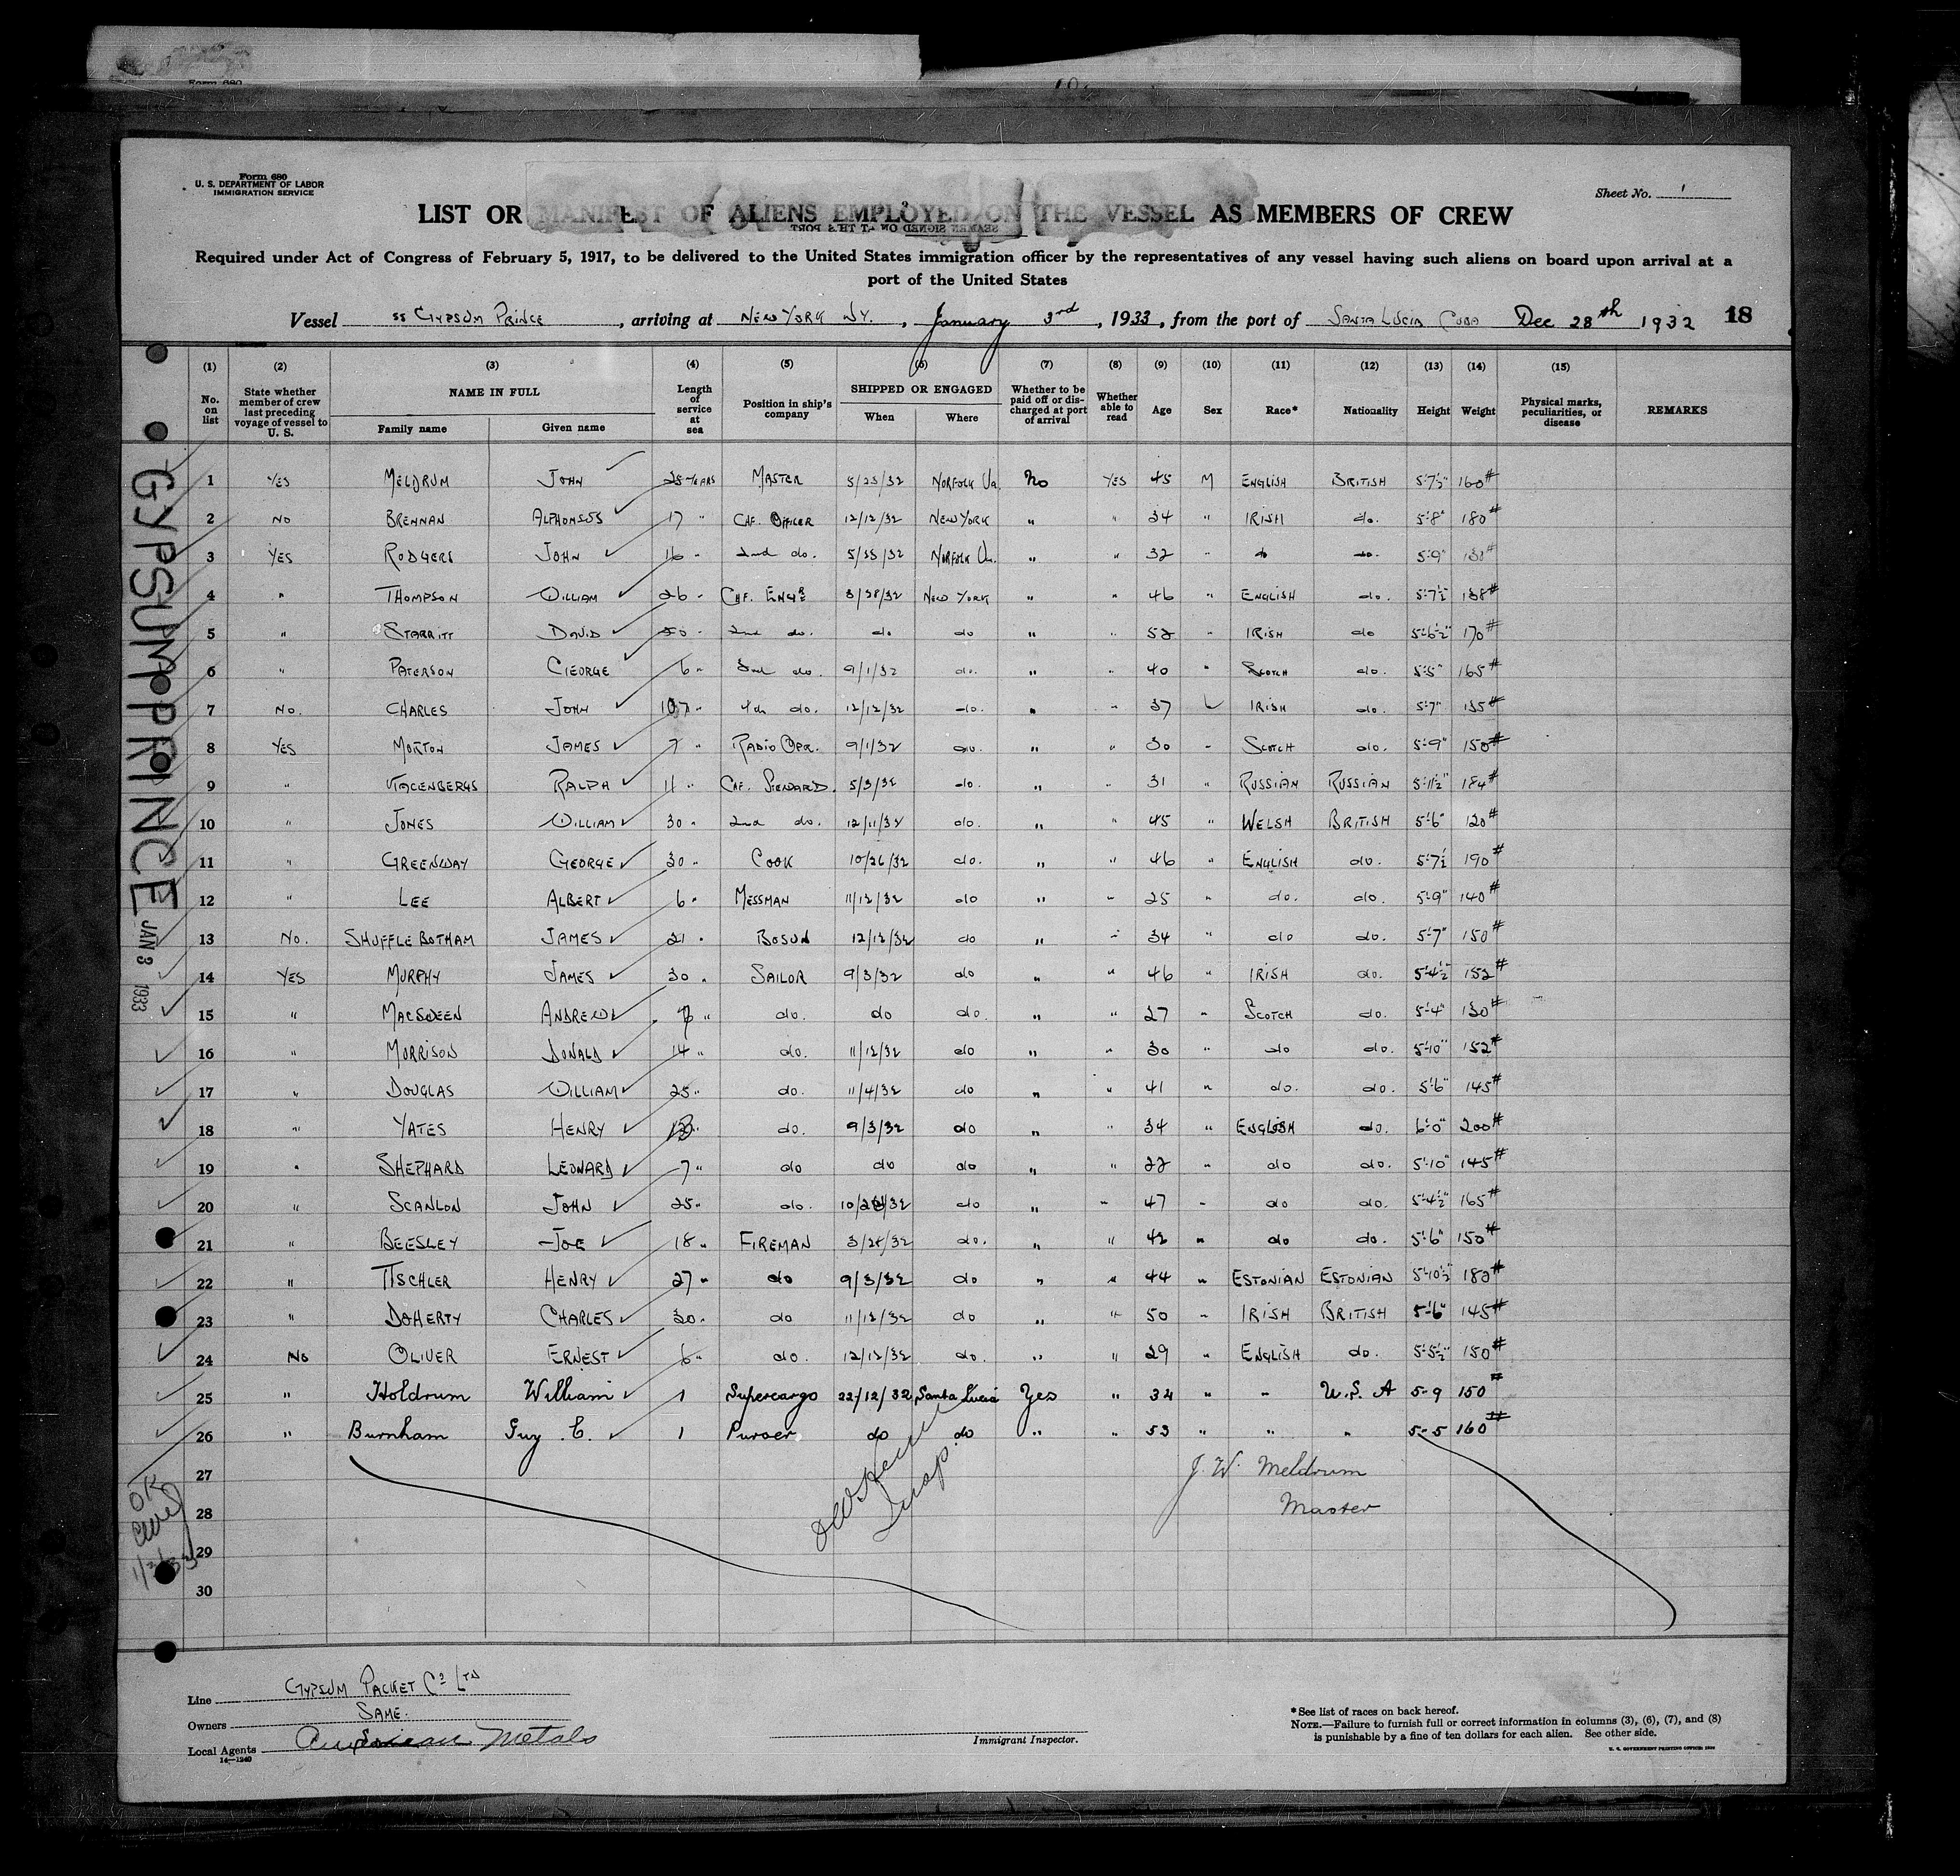 Form 680
U. S. DEPARTMENT OF LABOR
IMMIGRATION SERVICE
Sheet No. 1
LIST OR MANIFEST OF ALIENS EMPLOYED ON THE VESSEL AS MEMBERS OF CREW
SEAMEN SIGNED ON AT THIS PORT
Required under Act of Congress of February 5, 1917, to be delivered to the United States immigration officer by the representatives of any vessel having such aliens on board upon arrival at a
port of the United States
Vessel SS GYPSUM PRINCE, arriving at NEW YORK NY., January 3rd, 1933, from the port of SANTA LUCIA CUBA Dec 28th 1932 18
(1) (2) (3) (4) (5) (6) (7) (8) (9) (10) (11) (12) (13) (14) (15)
No. on list State whether member of crew last preceding voyage of vessel to U. S. NAME IN FULL Family name Given name Length of service at sea Position in ship's company SHIPPED OR ENGAGED When Where Whether to be paid off or discharged at port of arrival Whether able to read Age Sex Race* Nationality Height Weight Physical marks, peculiarities, or disease REMARKS
1 YES MELDRUM JOHN 28 YEARS MASTER 5/23/32 NORFOLK Va. No YES 45 M ENGLISH BRITISH 5'7½" 160#
2 NO BRENNAN ALPHONSUS 17 " CHF. OFFICER 12/12/32 NEW YORK " " 34 " IRISH do. 5'8" 180#
3 YES RODGERS JOHN 16 " 2nd do. NORFOLK Va. " " 32 " do do. 5'9"
4 " THOMPSON WILLIAM 26 " CHF. ENGR 3/28/32 NEW YORK " " 46 " ENGLISH do. 5'7½ 138#
5 " STARRITT DAVID 2nd do. do do " " 52 " IRISH do 5'6½" 170#
6 " PATERSON GEORGE 6 " 3rd do. 9/1/32 do. " 40 " SCOTCH do. 5'5" 165#
7 NO. CHARLES JOHN 4th do. 12/12/32 do. " " 37 IRISH do. 5'7" 135#
8 YES MORTON JAMES 7 " RADIO OPR. 9/1/32 do. " " 30 " SCOTCH do. 5'9" 150#
9 " RALPH 11 " CHF. STEWARD. 5/3/32 do. " " 31 " RUSSIAN RUSSIAN 5'11½" 184#
10 " JONES WILLIAM 30 " 2nd do. 12/11/32 do. " " 45 " WELSH BRITISH 5'6" 120#
11 " GREENWAY GEORGE 30 " COOK 10/26/32 do. " " 46 " ENGLISH do. 5'7½ 190#
12 " LEE ALBERT 6 " MESSMAN 11/12/32 do " " 25 " do. do. 5'9" 140#
13 NO. SHUFFLEBOTHAM JAMES 21 " BOSUN 12/12/32 do " " 34 " do do. 5'7" 150#
14 YES MURPHY JAMES 30 " SAILOR 9/3/32 do " " 46 " IRISH do. 5'4½" 152#
15 " MACSWEEN ANDREW " do. do do. " " 27 " SCOTCH do. 5'4" 130#
16 " MORRISON DONALD 14 " do. 11/12/32 do " " 30 " do do. 5'10" 152#
17 " DOUGLAS WILLIAM 25 " do. 11/4/32 do " " 41 " do. do. 5'6" 145#
18 " YATES HENRY do. 9/3/32 do " " 34 " ENGLISH do. 6'0" 200#
19 " SHEPHARD LEONARD 7 " do do do " " 22 " do do. 5'10" 145#
20 " SCANLON JOHN 25 " do. do " " 47 " do do. 5'4½" 165#
21 " BEESLEY JOE 18 " FIREMAN do. " " 42 " do do. 5'6" 150#
22 " TISCHLER HENRY 27 " do 9/3/32 do " " 44 " ESTONIAN ESTONIAN 5'10½" 182#
23 " DOHERTY CHARLES 30 " do 11/12/32 do " " 50 " IRISH BRITISH 5'6" 145#
24 No OLIVER ERNEST 6 " do. 12/12/32 do. " " 29 " ENGLISH do. 5'5½" 150#
25 " Holdrum William 1 Supercargo 22/12/32 Santa Lucia Yes " 34 " " U.S.A 5-9 150#
26 " Burnham Guy E. 1 Purser do do. " " 53 " " " 5-5 160#
27
28
29
30
J. W. Meldrum
Master
GYPSUM PRINCE
JAN 3 1933
OK
1/3/33
Line GYPSUM PACKET Co LTD
Owners SAME.
Local Agents American Metals
14—1240
Immigrant Inspector.
*See list of races on back hereof.
NOTE.—Failure to furnish full or correct information in columns (3), (6), (7), and (8)
is punishable by a fine of ten dollars for each alien. See other side.